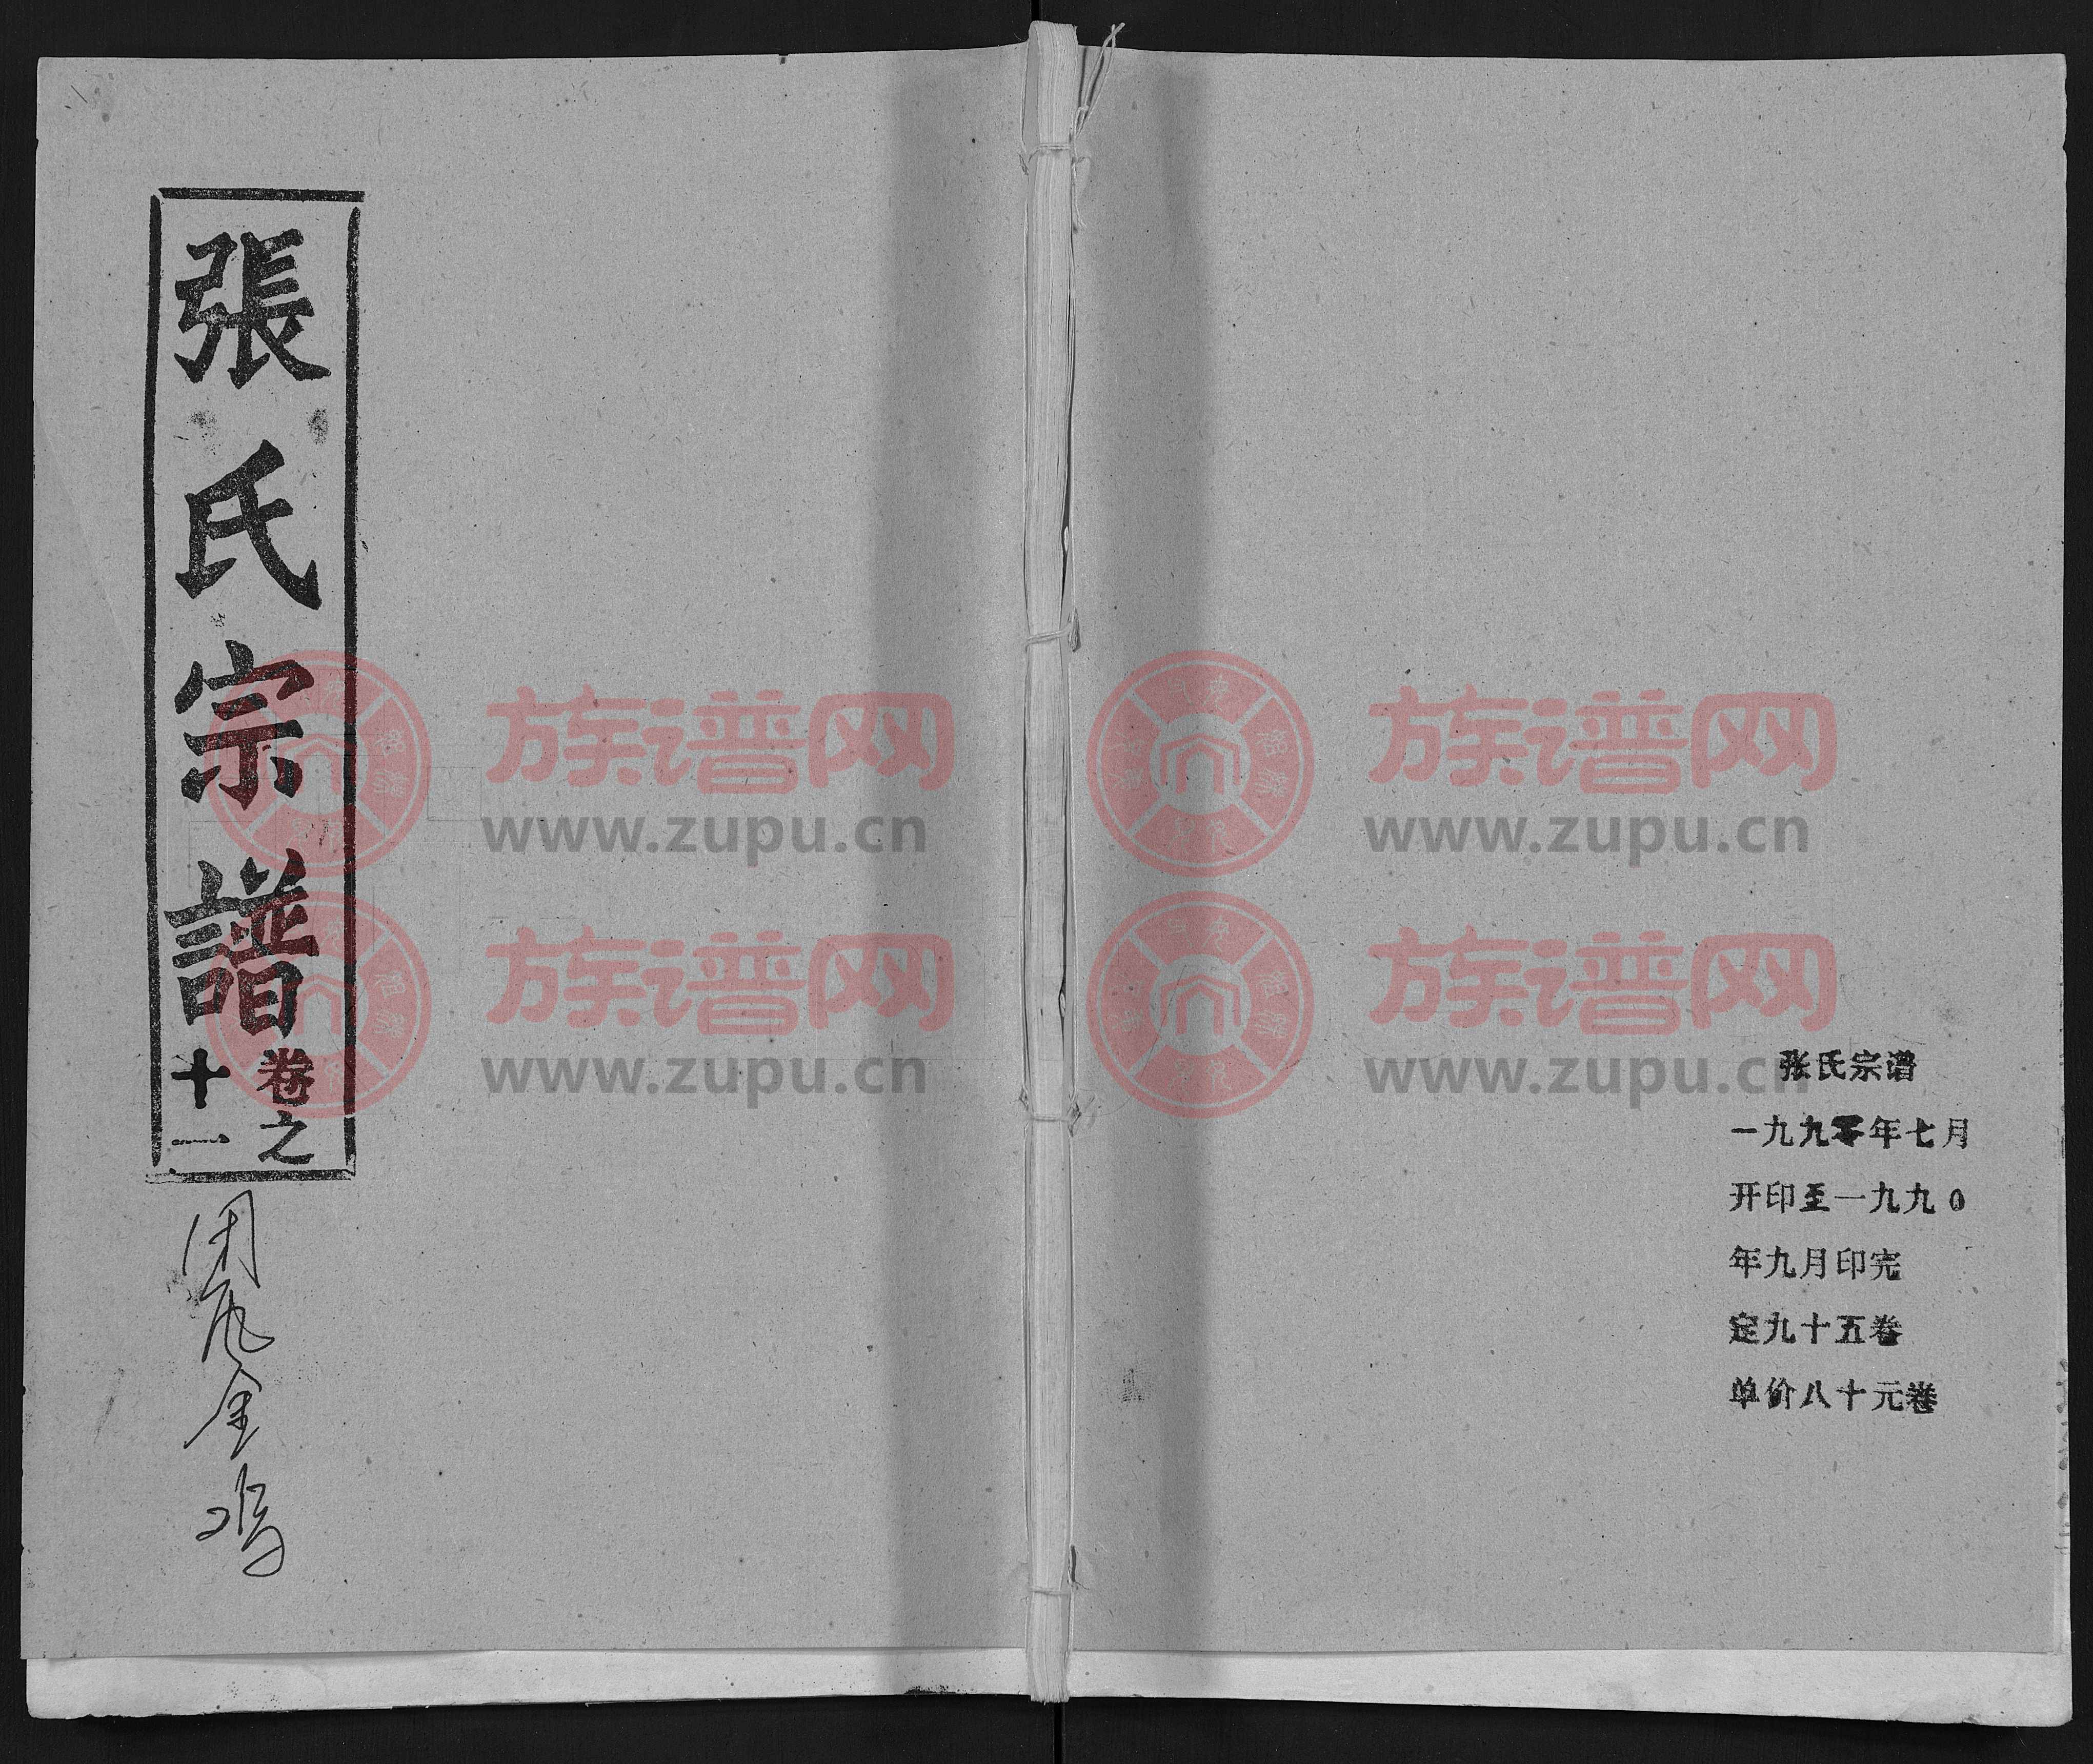 張氏宗譜
卷之
十一
金鸡
张氏宗谱
一九九零年七月
开印至一九九0
年九月印完
定九十五卷
单价八十元卷
族谱网
www.zupu.cn
族谱网
www.zupu.cn
族谱网
www.zupu.cn
族谱网
www.zupu.cn